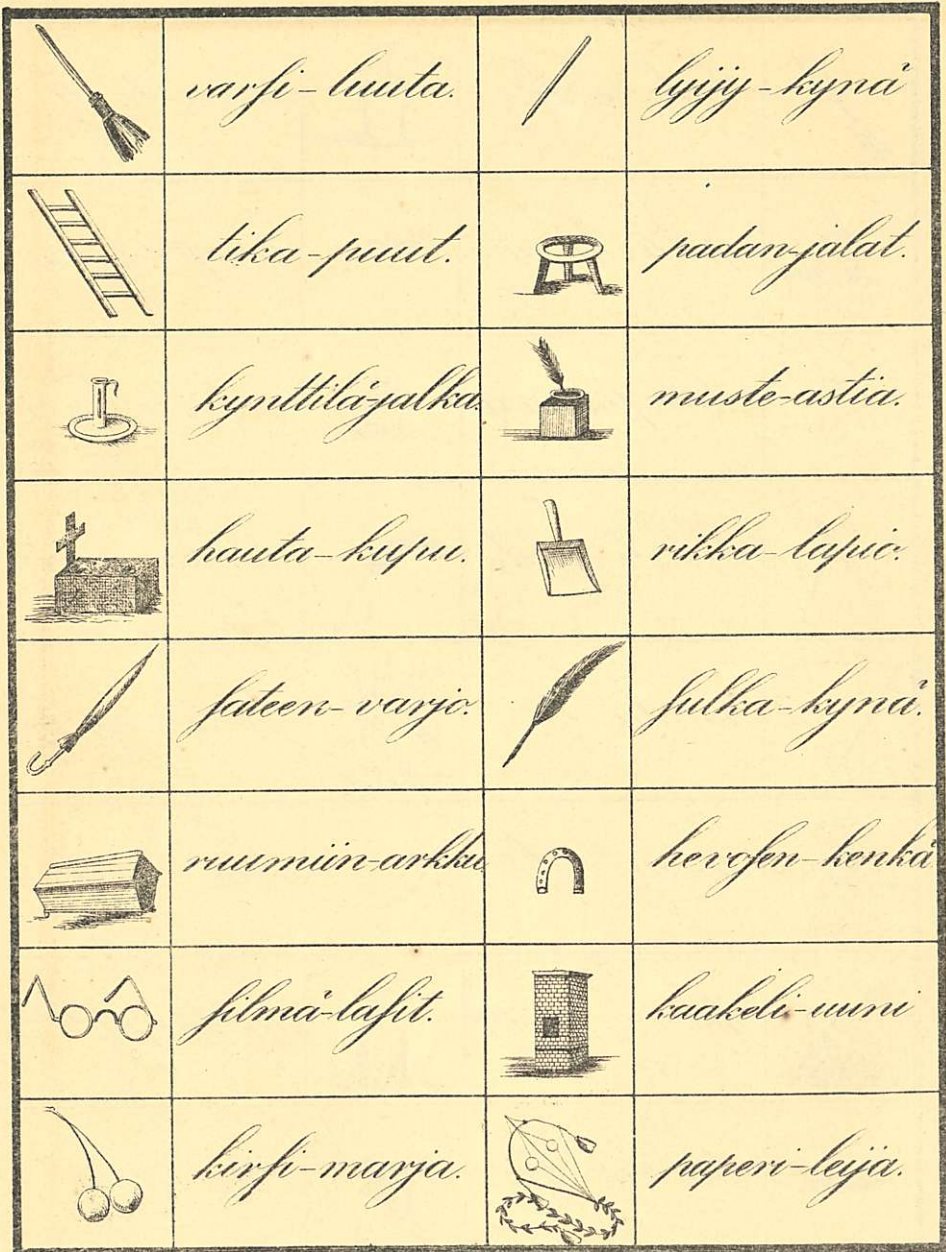 varſi-luuta.
lyijy-kynä
tika-puut.
padan-jalat.
kynttilä-jalka.
muste-astia.
hauta-kupu.
rikka-lapio.
ſateen-varjo.
ſulka-kynä.
ruumiin-arkku.
hevoſen-kenkä
ſilmä-laſit.
kaakeli-uuni
kirſi-marja.
paperi-leija.